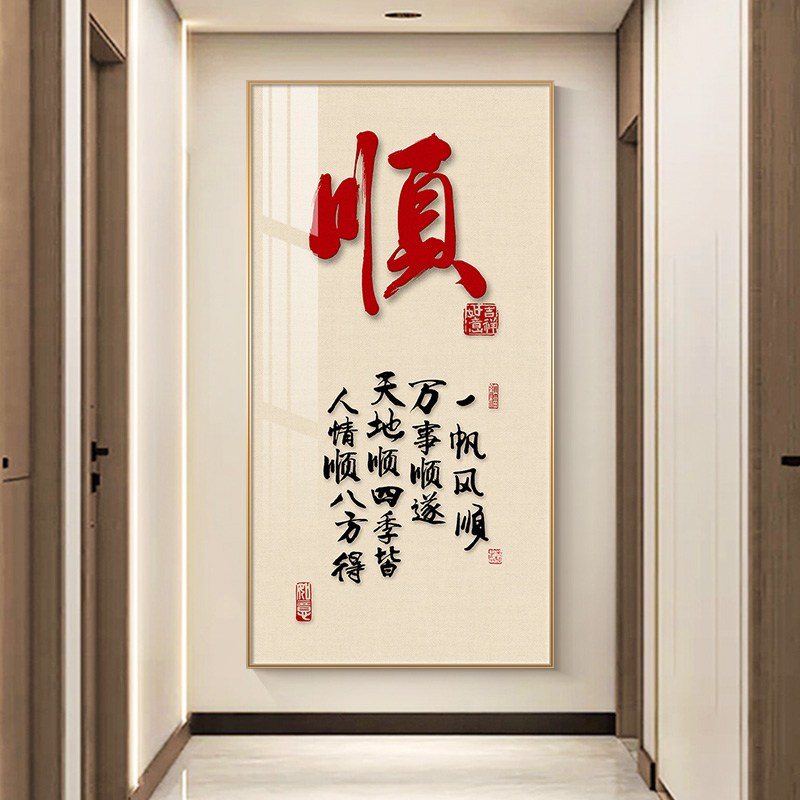 順
吉祥
如意
一帆风順
万事顺遂
天地顺四季皆
人情顺八方得
如意